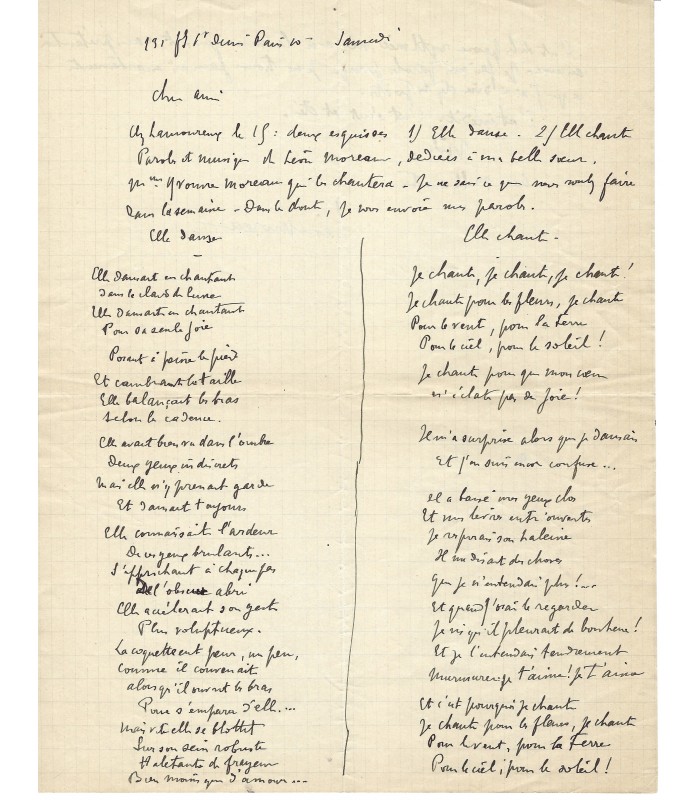 191 fg St Denis Paris 10 - Samedi
Cher ami
Chez Lamoureux le 15 : deux esquisses 1) Elle danse. 2) Elle chante
Paroles et musique de Léon Moreau, dédiées à ma belle sœur.
Mme Yvonne Moreau qui les chantera - Je ne sais ce que vous voulez faire
dans la semaine - Dans le doute, je vous envoie mes paroles.
Elle danse
Elle dansait en chantant
dans le clair de lune
Elle dansait en chantant
Pour sa seule joie
Posant à peine le pied
Et cambrant la taille
Elle balançait les bras
selon la cadence.
Elle avait bien vu dans l'ombre
Deux yeux indiscrets
Mais elle n'y prenait garde
Et dansait toujours
Elle connaissait l'ardeur
De ces yeux brulants...
S'approchant à chaque pas
De l'obscur abri
Elle accélerait son geste
Plus voluptueux.
La coquette eut peur, un peu,
comme il convenait
alors qu'il ouvrit les bras
Pour s'emparer d'elle....
Mais vite elle se blottit
Sur son sein robuste
Haletante de frayeur
Bien moins que d'amour...
Elle chante -
Je chante, je chante, je chante!
Je chante pour les fleurs, je chante
Pour le vent, pour la Terre
Pour le ciel, pour le soleil!
Je chante pour que mon cœur
n'éclate pas de joie!
Il m'a surprise alors que je dansais
Et j'en suis encor confuse...
Il a baisé mes yeux clos
Et mes lèvres entr'ouvertes
Je respirais son haleine
Il me disait des choses
Que je n'entendais plus!...
Et quand j'osai le regarder
Je vis qu'il pleurait de bonheur!
Et je l'entendais tendrement
Murmurer je t'aime! je t'aime
Et c'est pourquoi je chante
Je chante pour les fleurs, je chante
Pour le vent, pour la Terre
Pour le ciel, pour le soleil!